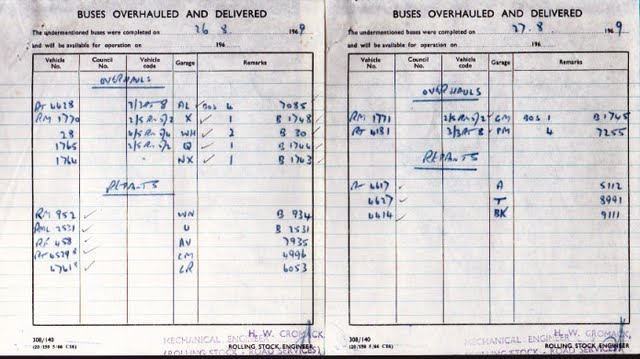 BUSES OVERHAULED AND DELIVERED
The undermentioned buses were completed on 26. 8. 1969
and will be available for operation on 196
Vehicle No. Council No. Vehicle code Garage Remarks
OVERHAULS
RT 4428 AL 4 7085
RM 1770 X 1 B 1748
28 WH 2 B 30
1765 Q 1 B 1744
1764 NX 1 B 1743
REPAINTS
RM 952 WN B 934
RML 2531 U B 2531
RF 458 AV 7935
RT 4529 CM 4996
4761 CR 6053
308/140
H. W. CROMACK
MECHANICAL ENGINEER
ROLLING STOCK ENGINEER
(ROLLING STOCK - ROAD SERVICES)
BUSES OVERHAULED AND DELIVERED
The undermentioned buses were completed on 27. 8. 1969
and will be available for operation on 196
Vehicle No. Council No. Vehicle code Garage Remarks
OVERHAULS
RM 1771 GM 1 B 1745
RT 4181 PM 4 7255
REPAINTS
RT 4617 A 5112
4627 T 8991
4614 BK 9111
308/140
H. W. CROMACK
MECHANICAL ENGINEER
ROLLING STOCK ENGINEER
(ROLLING STOCK - ROAD SERVICES)